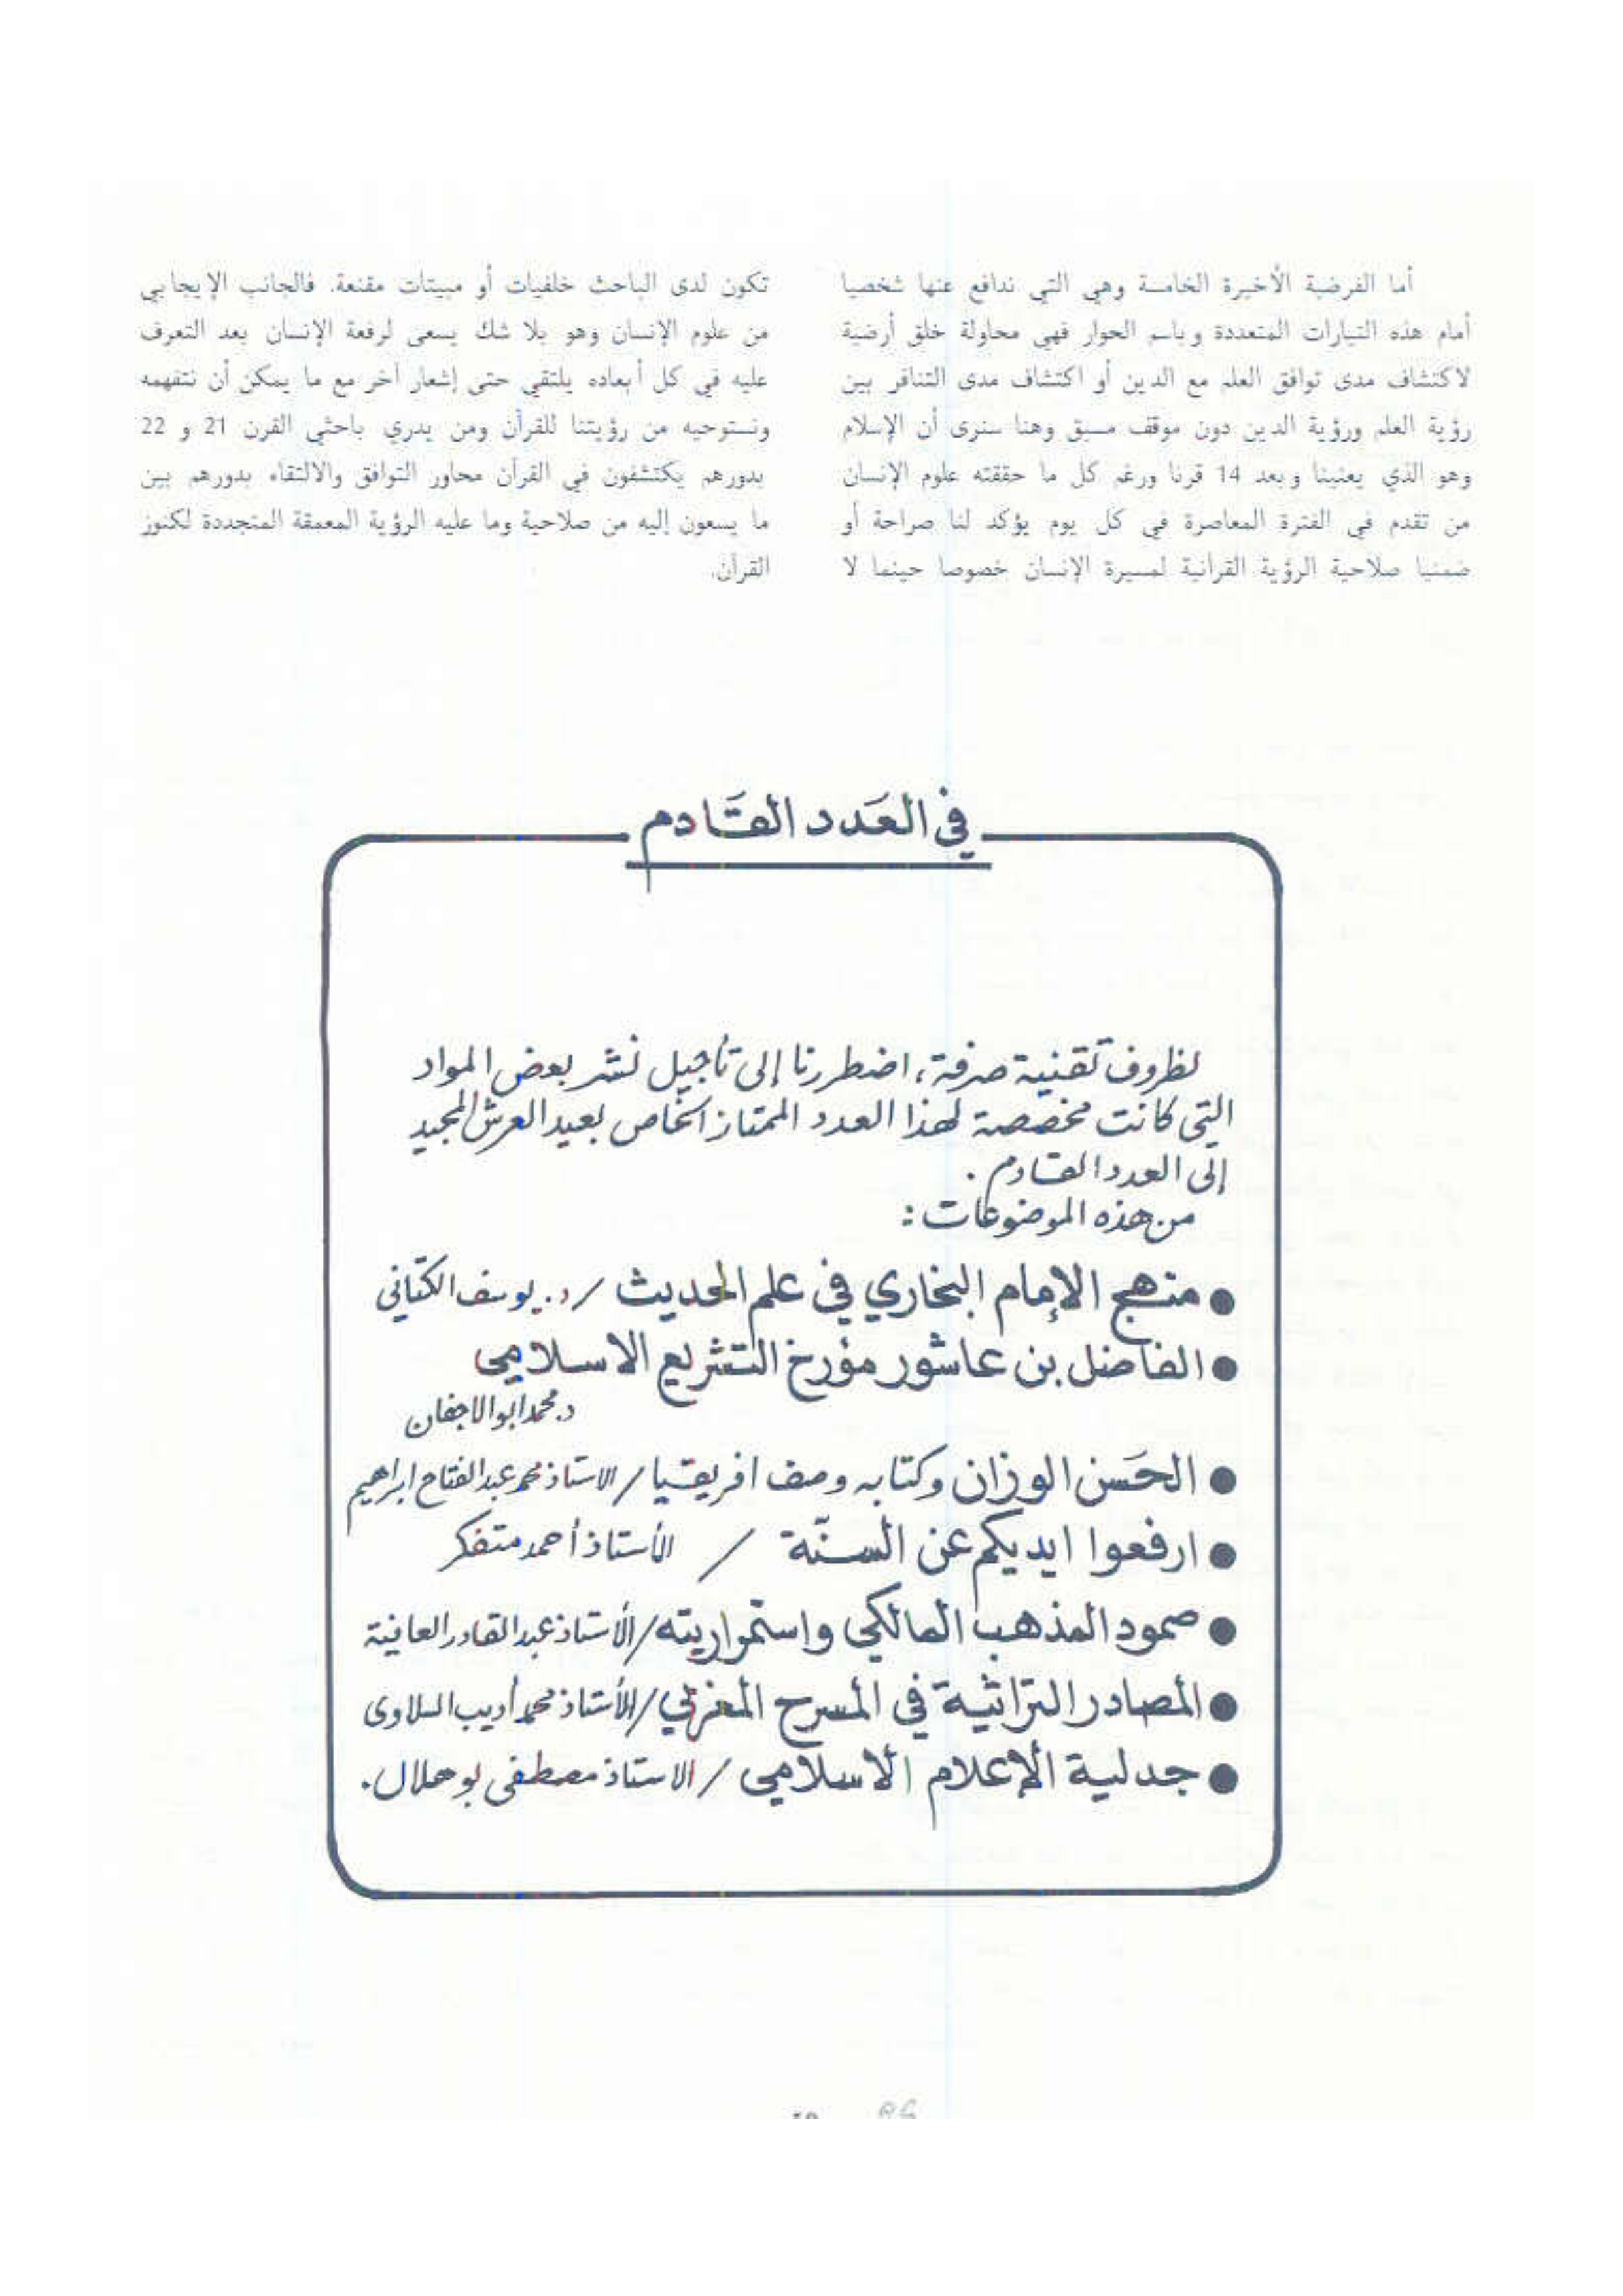 أما الفرضية الأخيرة الخامسة وهي التي ندافع عنها شخصيا
أمام هذه التيارات المتعددة وباسم الحوار فهي محاولة خلق أرضية
لاكتشاف مدى توافق العلم مع الدين أو اكتشاف مدى التنافر بين
رؤية العلم ورؤية الدين دون موقف مسبق وهنا سنرى أن الإسلام
وهو الذي يعنينا وبعد 14 قرنا ورغم كل ما حققته علوم الإنسان
من تقدم في الفترة المعاصرة في كل يوم يؤكد لنا صراحة أو
ضمنيا صلاحية الرؤية القرآنية لمسيرة الإنسان خصوصا حينما لا
تكون لدى الباحث خلفيات أو مبيتات مقنعة. فالجانب الإيجابي
من علوم الإنسان وهو بلا شك يسعى لرفعة الإنسان بعد التعرف
عليه في كل أبعاده يلتقي حتى إشعار آخر مع ما يمكن أن نتفهمه
ونستوحيه من رؤيتنا للقرآن ومن يدري باحثي القرن 21 و 22
بدورهم يكتشفون في القرآن محاور التوافق والالتقاء بدورهم بين
ما يسعون إليه من صلاحية وما عليه الرؤية المعمقة المتجددة لكنوز
القرآن.
في العَدد القَادم
لظروف تقنية صرفة، اضطررنا إلى تأجيل نشر بعض المواد
التي كانت مخصصة لهذا العدد الممتاز الخاص بعيد العرش المجيد
إلى العدد القادم.
من هذه الموضوعات :
● منهج الإمام البخاري في علم الحديث / د. يوسف الكتاني
● الفاضل بن عاشور مؤرخ التشريع الاسلامي
د. محمد ابوالاجفان
● الحَسن الوزان وكتابه وصف افريقيا / الاستاذ محمد عبدالفتاح ابراهيم
● ارفعوا ايديكم عن السنّة / الأستاذ أحمد متفكر
● صمود المذهب المالكي واستمراريته / الأستاذ عبدالقادر العافية
● المصادر التراثية في المسرح المغربي / الأستاذ محمد أديب السلاوي
● جدلية الإعلام الاسلامي / الاستاذ مصطفى بوهلال.